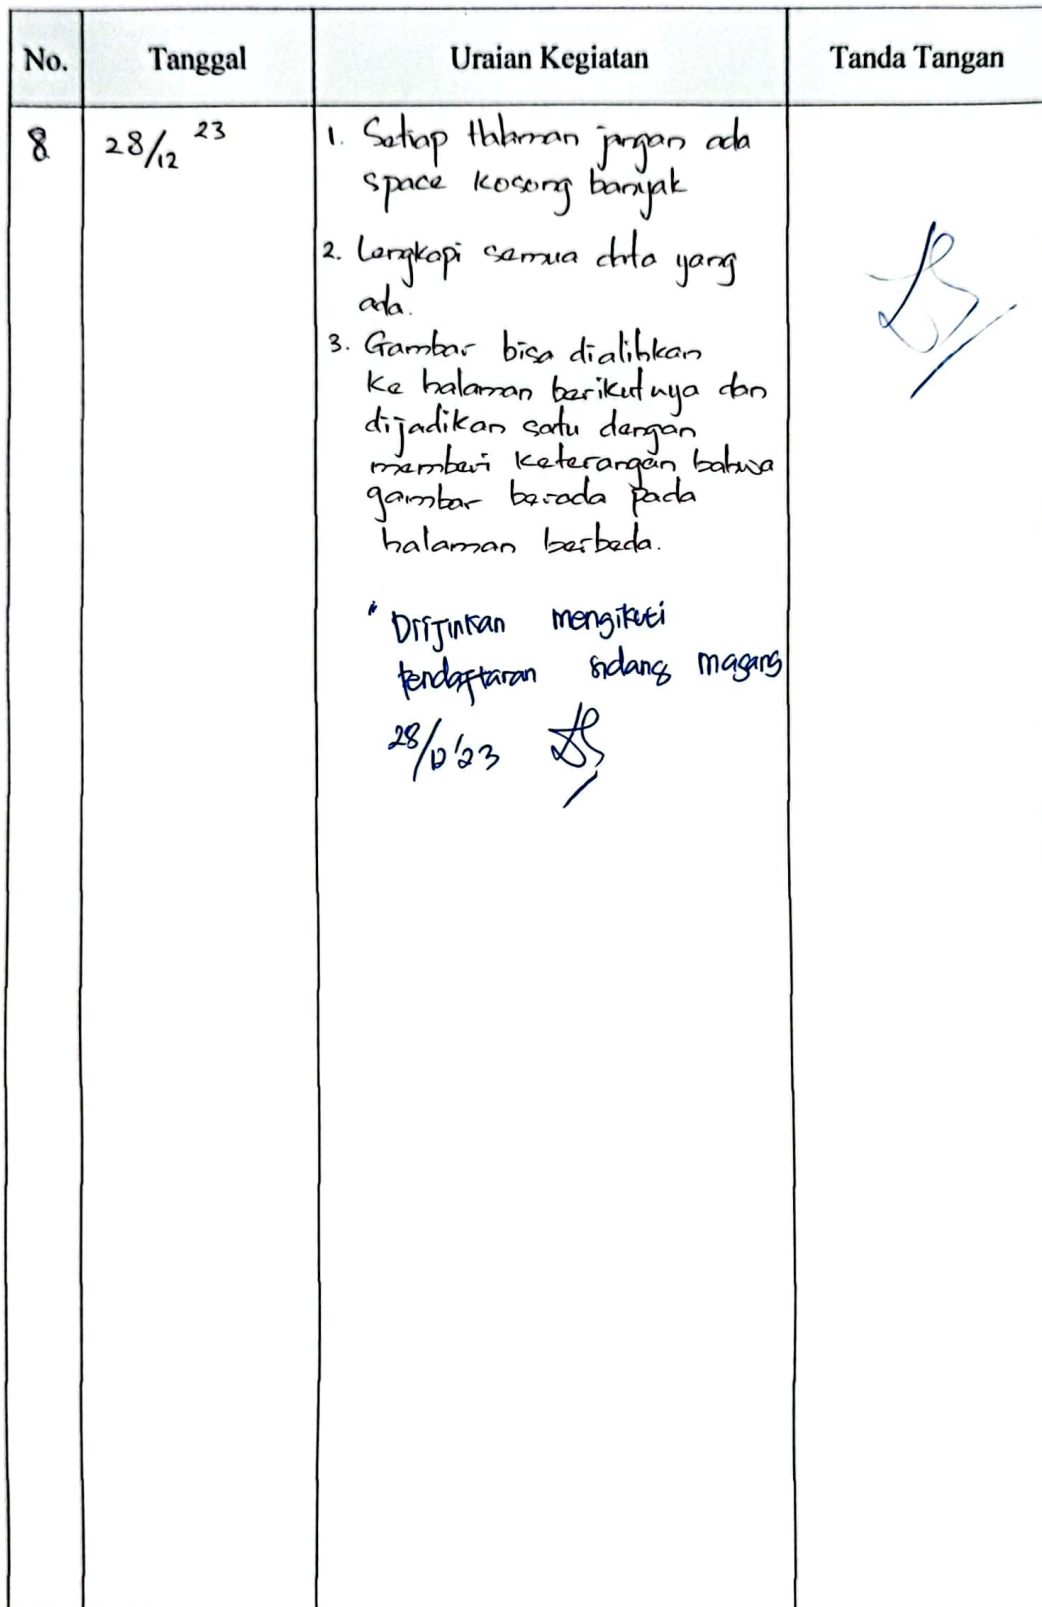 No. Tanggal Uraian Kegiatan Tanda Tangan
8 28/12 23 1. Setiap Halaman jangan ada
space kosong banyak
2. Lengkapi semua data yang
ada.
3. Gambar bisa dialihkan
ke halaman berikutnya dan
dijadikan satu dengan
memberi keterangan bahwa
gambar berada pada
halaman berbeda.
" Diijinkan mengikuti
pendaftaran sidang magang
28/12'23